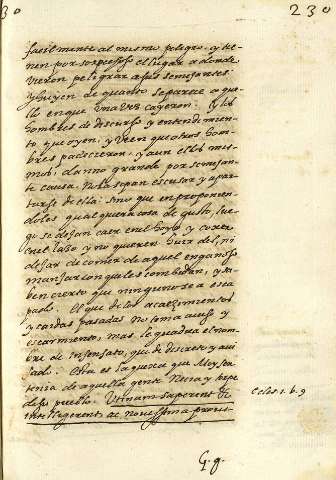 30
230
facilmente al mismo peligro. y tie-
nen por sospechoso el lugar a donde
vieron peligrar a sus semejantes
y huyen de quando se parece a que-
llo en que una vez cayeron. Y los
hombres de discurso y entendimien-
to, que oyen, y veen que otros hom-
bres padecieron, y aun ellos mis-
mos, daño grande por semejan-
te causa. No la sepan escusar y apar-
tarse de ella: sino que en proponien-
doles qualquiera cosa de gusto, lue-
go se dejan caer en el hoyo, y caer
en el lazo y no quieren huir del, ni
dejar de comer de aquel engañoso
manjar con que les combidan, y sa-
ben cierto que ninguno se a esca-
pado. El que de los acaecimientos
y caidas pasadas no toma auiso y
escarmiento, mas le quadra el nom-
bre de insensato, que de discreto y aui-
sado. Esta es la quexa que Moyses
tenia de aquella gente Necia y
pueblo. Utinam saperent &
intelligerent ac nouissima proui-
Eccles. 1. b. 9
G. g.